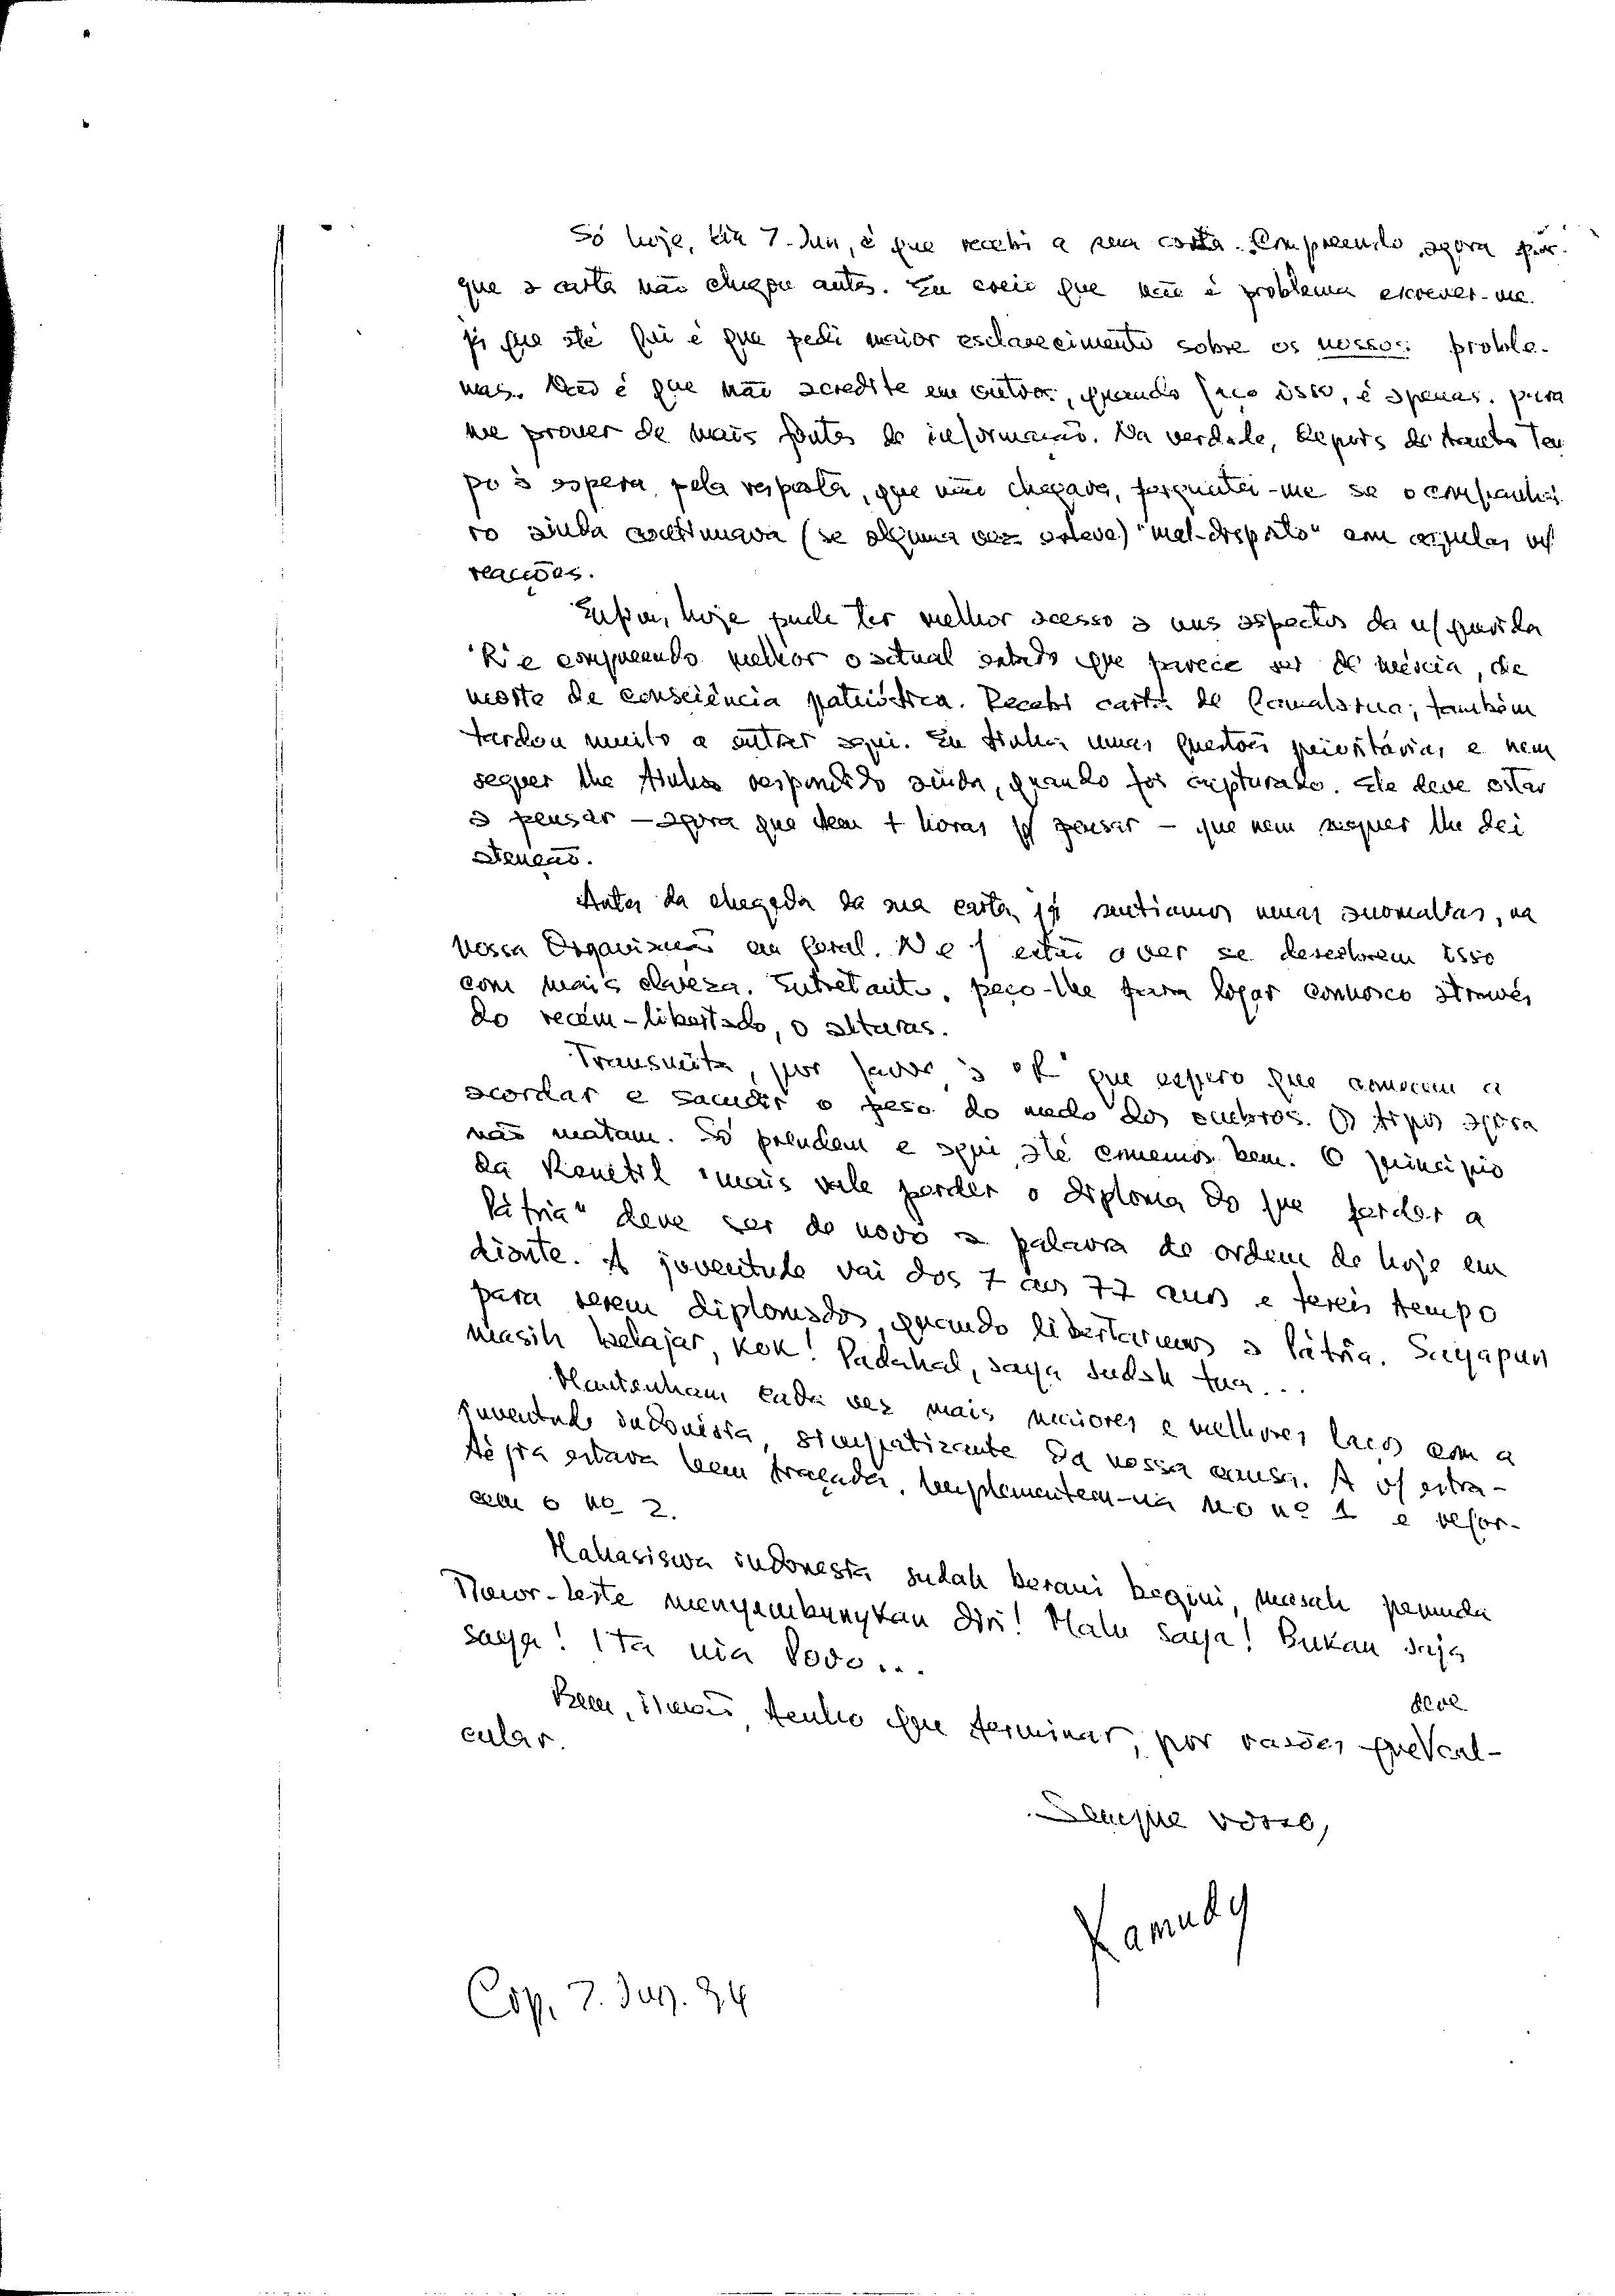 Só hoje, dia 7. Jun, é que recebi a sua carta. Compreendo, agora por-
que a carta não chegou antes. Eu creio que não é problema escrever-me
já que até fui eu que pedi maior esclarecimento sobre os nossos proble-
mas. Não é que não acredite em outros, quando faço isso, é apenas para
me prover de mais fontes de informação. Na verdade, depois de tanto tem
po à espera pela resposta, que não chegava, perguntei-me se o companhei
ro ainda continuava (se alguma vez esteve) "mal-disposto" em
reacções.
Enfim, hoje pude ter melhor acesso a uns aspectos da
e compreendo melhor o actual estado que parece ser de inércia, de
morte de consciência patriótica. Recebi carta de também
tardou muito a entrar aqui. Eu tinha umas questões prioritárias e nem
sequer lhe tinha respondido ainda, quando foi capturado. Ele deve estar
a pensar — agora que tem + horas p/ pensar — que nem sequer lhe dei
atenção.
Antes da chegada da sua carta já sentíamos umas anomalias, na
nossa Organização em geral. a ver se descobrem isso
com mais clareza. Entretanto, peço-lhe para jogar connosco através
do recém-libertado, o alturas.
Transmita, por favor, à que espero que comecem a
acordar e sacudir o peso do medo dos ombros. Os tipos agora
não matam. Só prendem e aqui até comemos bem. O princípio
da Renetil "mais vale perder o diploma do que perder a
Pátria" deve ser de novo a palavra de ordem de hoje em
diante. A juventude vai dos 7 aos 77 anos e tereis tempo
para serem diplomados, quando libertarmos a Pátria. Sayapun
masih belajar, kok! Padahal, saya sudah tua...
Mantenham cada vez mais maiores e melhores laços com a
juventude indonésia, simpatizante da nossa causa. A estra-
tégia estava bem traçada. Implementem-na no nº 1 e refor-
cem o nº 2.
Mahasiswa indonesia sudah berani begini, masah pemuda
Timor-Leste menyembunyikan diri! Malu saya! Bukan saja
saya! Ita nia Povo...
Bem, irmão, tenho que terminar, por razões que deve cal-
cular.
Sempre vosso,
Kamudy
Cip, 7. Jun. 94